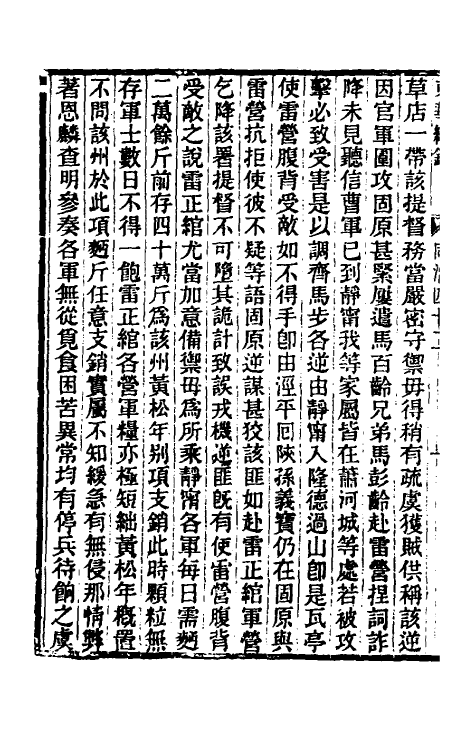 草店一帶該提督務當嚴密守禦毋得稍有疏虞獲賊供稱該逆
因官軍圍攻固原甚緊屢遣馬百齡兄弟馬彭齡赴雷營捏詞詐
降未見聽信曹軍已到靜甯我等家屬皆在蕭河城等處若被攻
擊必致受害是以調齊馬步各逆由靜甯入隆德過山卽是瓦亭
使雷營腹背受敵如不得手卽由涇平回陝孫義寶仍在固原與
雷營抗拒使彼不疑等語固原逆謀甚狡該匪如赴雷正綰軍營
乞降該署提督不可墮其詭計致誤戎機逆匪旣有使雷營腹背
受敵之說雷正綰尤當加意備禦毋爲所乘靜甯各軍每日需麪
二萬餘斤前存四十萬斤爲該州黃松年别項支銷此時顆粒無
存軍士數日不得一飽雷正綰各營軍糧亦極短絀黃松年槪置
不問該州於此項麪斤任意支銷實屬不知緩急有無侵那情弊
著恩麟查明參奏各軍無從覓食困苦異常均有停兵待餉之虞